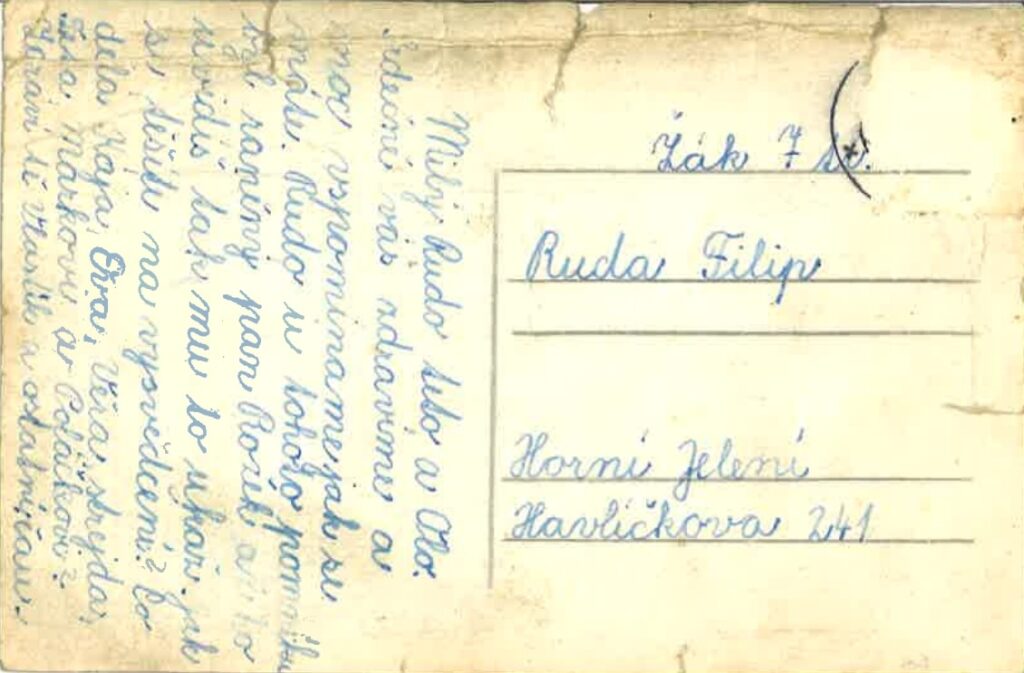 Milý Rudo teto a Olo.
Srdečně vás zdravíme a
moc vspomínamejak se
máte. Rudo u tohoto pomníku
byl raněný pan Rozek a
uvidíš tak mu to ukaž. jak
se těšíte na vysvědčení? Co
dělá Kaja, Věra, strejda,
Markovi a Poláčkovi?
Zdraví tě Vlastík a ostatní
Žák 7 tř.
Ruda Filip
Horní Jelení
Havlíčkova 241